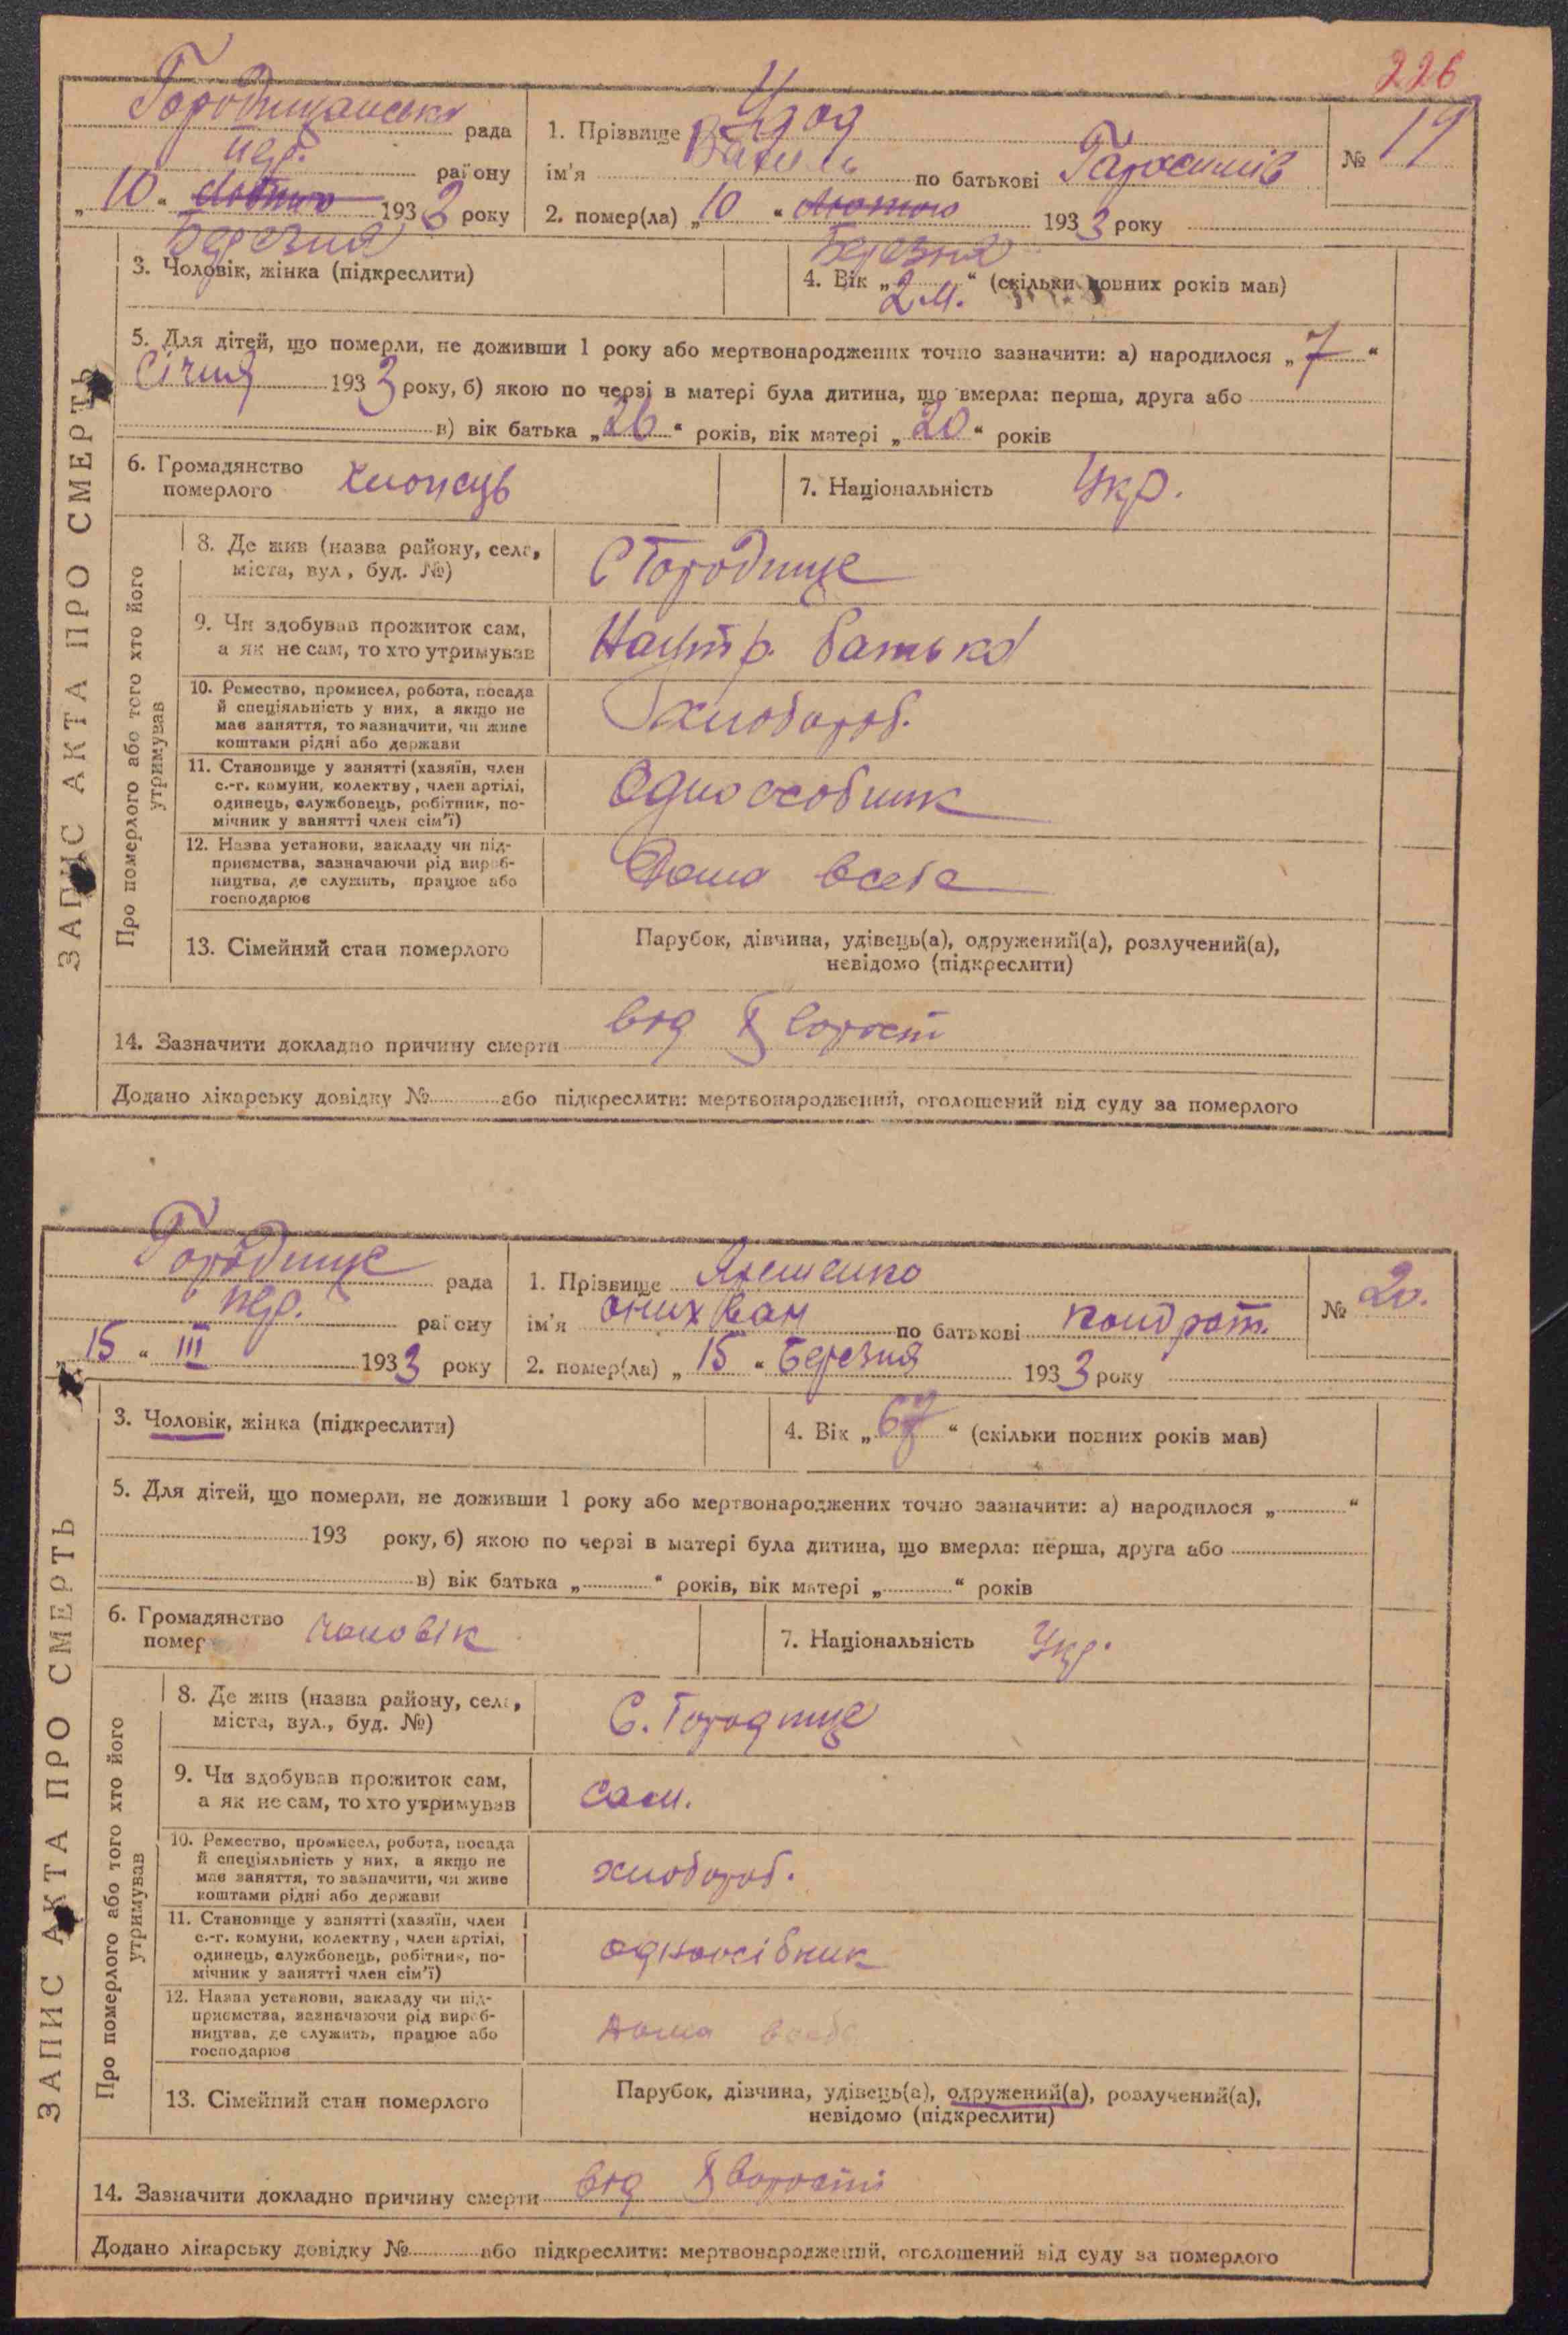 226
Городищанська рада
пер. району
„10“ лютого 1933 року
Березня
1. Прізвище Удод
ім'я Василь по батькові
№ 19
2. помер(ла) „10“ лютого 1933 року
Березня
3. Чоловік, жінка (підкреслити)
4. Вік „2 м.“ (скільки повних років мав)
5. Для дітей, що померли, не доживши 1 року або мертвонароджених точно зазначити: а) народилося „7“
Січня 1933 року, б) якою по черзі в матері була дитина, що вмерла: перша, друга або
в) вік батька „26“ років, вік матері „20“ років
6. Громадянство
померлого хлопець
7. Національність Укр.
ЗАПИС АКТА ПРО СМЕРТЬ
Про померлого або того хто його
утримував
8. Де жив (назва району, села,
міста, вул, буд. №)
С Городище
9. Чи здобував прожиток сам,
а як не сам, то хто утримував
На утр. батька
10. Ремество, промисел, робота, посада
й спеціяльність у них, а якщо не
має заняття, то зазначити, чи живе
коштами рідні або держави
хлібороб.
11. Становище у занятті (хазяїн, член
с.-г. комуни, колектву, член артілі,
одинець, службовець, робітник, по-
мічник у занятті член сім'ї)
Одноособник
12. Назва установи, закладу чи під-
приємства, зазначаючи рід вироб-
ництва, де служить, працює або
господарює
Дома всебе
13. Сімейний стан померлого
Парубок, дівчина, удівець(а), одружений(а), розлучений(а),
невідомо (підкреслити)
14. Зазначити докладно причину смерти від
Додано лікарську довідку № або підкреслити: мертвонароджений, оголошений від суду за померлого
Городище рада
пер. району
„15“ III 1933 року
1. Прізвище
ім'я по батькові Кондрат.
№ 20.
2. помер(ла) „15“ Березня 1933 року
3. Чоловік, жінка (підкреслити)
4. Вік „67“ (скільки повних років мав)
5. Для дітей, що померли, не доживши 1 року або мертвонароджених точно зазначити: а) народилося „ “
193 року, б) якою по черзі в матері була дитина, що вмерла: перша, друга або
в) вік батька „ “ років, вік матері „ “ років
6. Громадянство
помер чоловік
7. Національність Укр.
ЗАПИС АКТА ПРО СМЕРТЬ
Про померлого або того хто його
утримував
8. Де жив (назва району, села,
міста, вул., буд. №)
С. Городище
9. Чи здобував прожиток сам,
а як не сам, то хто утримував
сам.
10. Ремество, промисел, робота, посада
й спеціяльність у них, а якщо не
має заняття, то зазначити, чи живе
коштами рідні або держави
хлібороб.
11. Становище у занятті (хазяїн, член
с.-г. комуни, колектву, член артілі,
одинець, службовець, робітник, по-
мічник у занятті член сім'ї)
одноосібник
12. Назва установи, закладу чи під-
приємства, зазначаючи рід вироб-
ництва, де служить, працює або
господарює
дома всебе
13. Сімейний стан померлого
Парубок, дівчина, удівець(а), одружений(а), розлучений(а),
невідомо (підкреслити)
14. Зазначити докладно причину смерти від
Додано лікарську довідку № або підкреслити: мертвонароджений, оголошений від суду за померлого